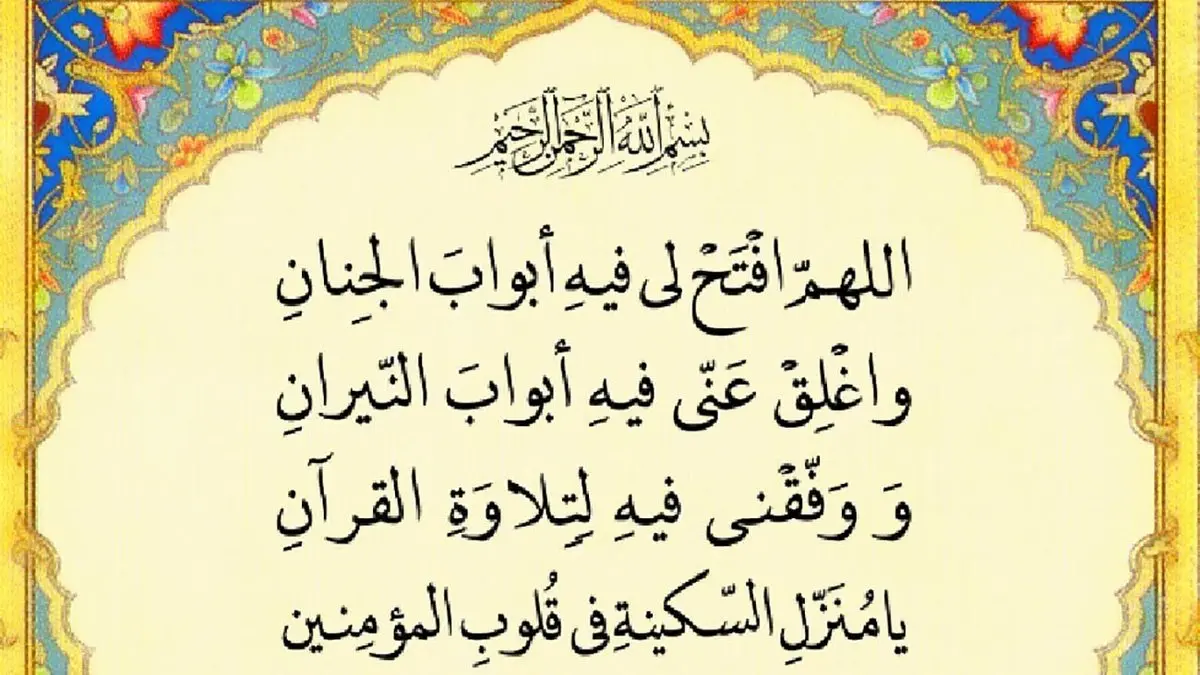 بِسْمِ اللَّهِ الرَّحْمَنِ الرَّحِيمِ
اللهمّ افْتَحْ لی فیهِ أبوابَ الجِنانِ
واغْلِقْ عَنّی فیهِ أبوابَ النّیرانِ
وَ وَفّقْنی فیهِ لِتِلاوَةِ القرآنِ
یامُنَزّلِ السّکینةِ فی قُلوبِ المؤمِنین